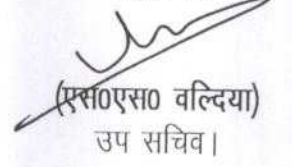 (एस0एस0 वल्दिया)
उप सचिव।